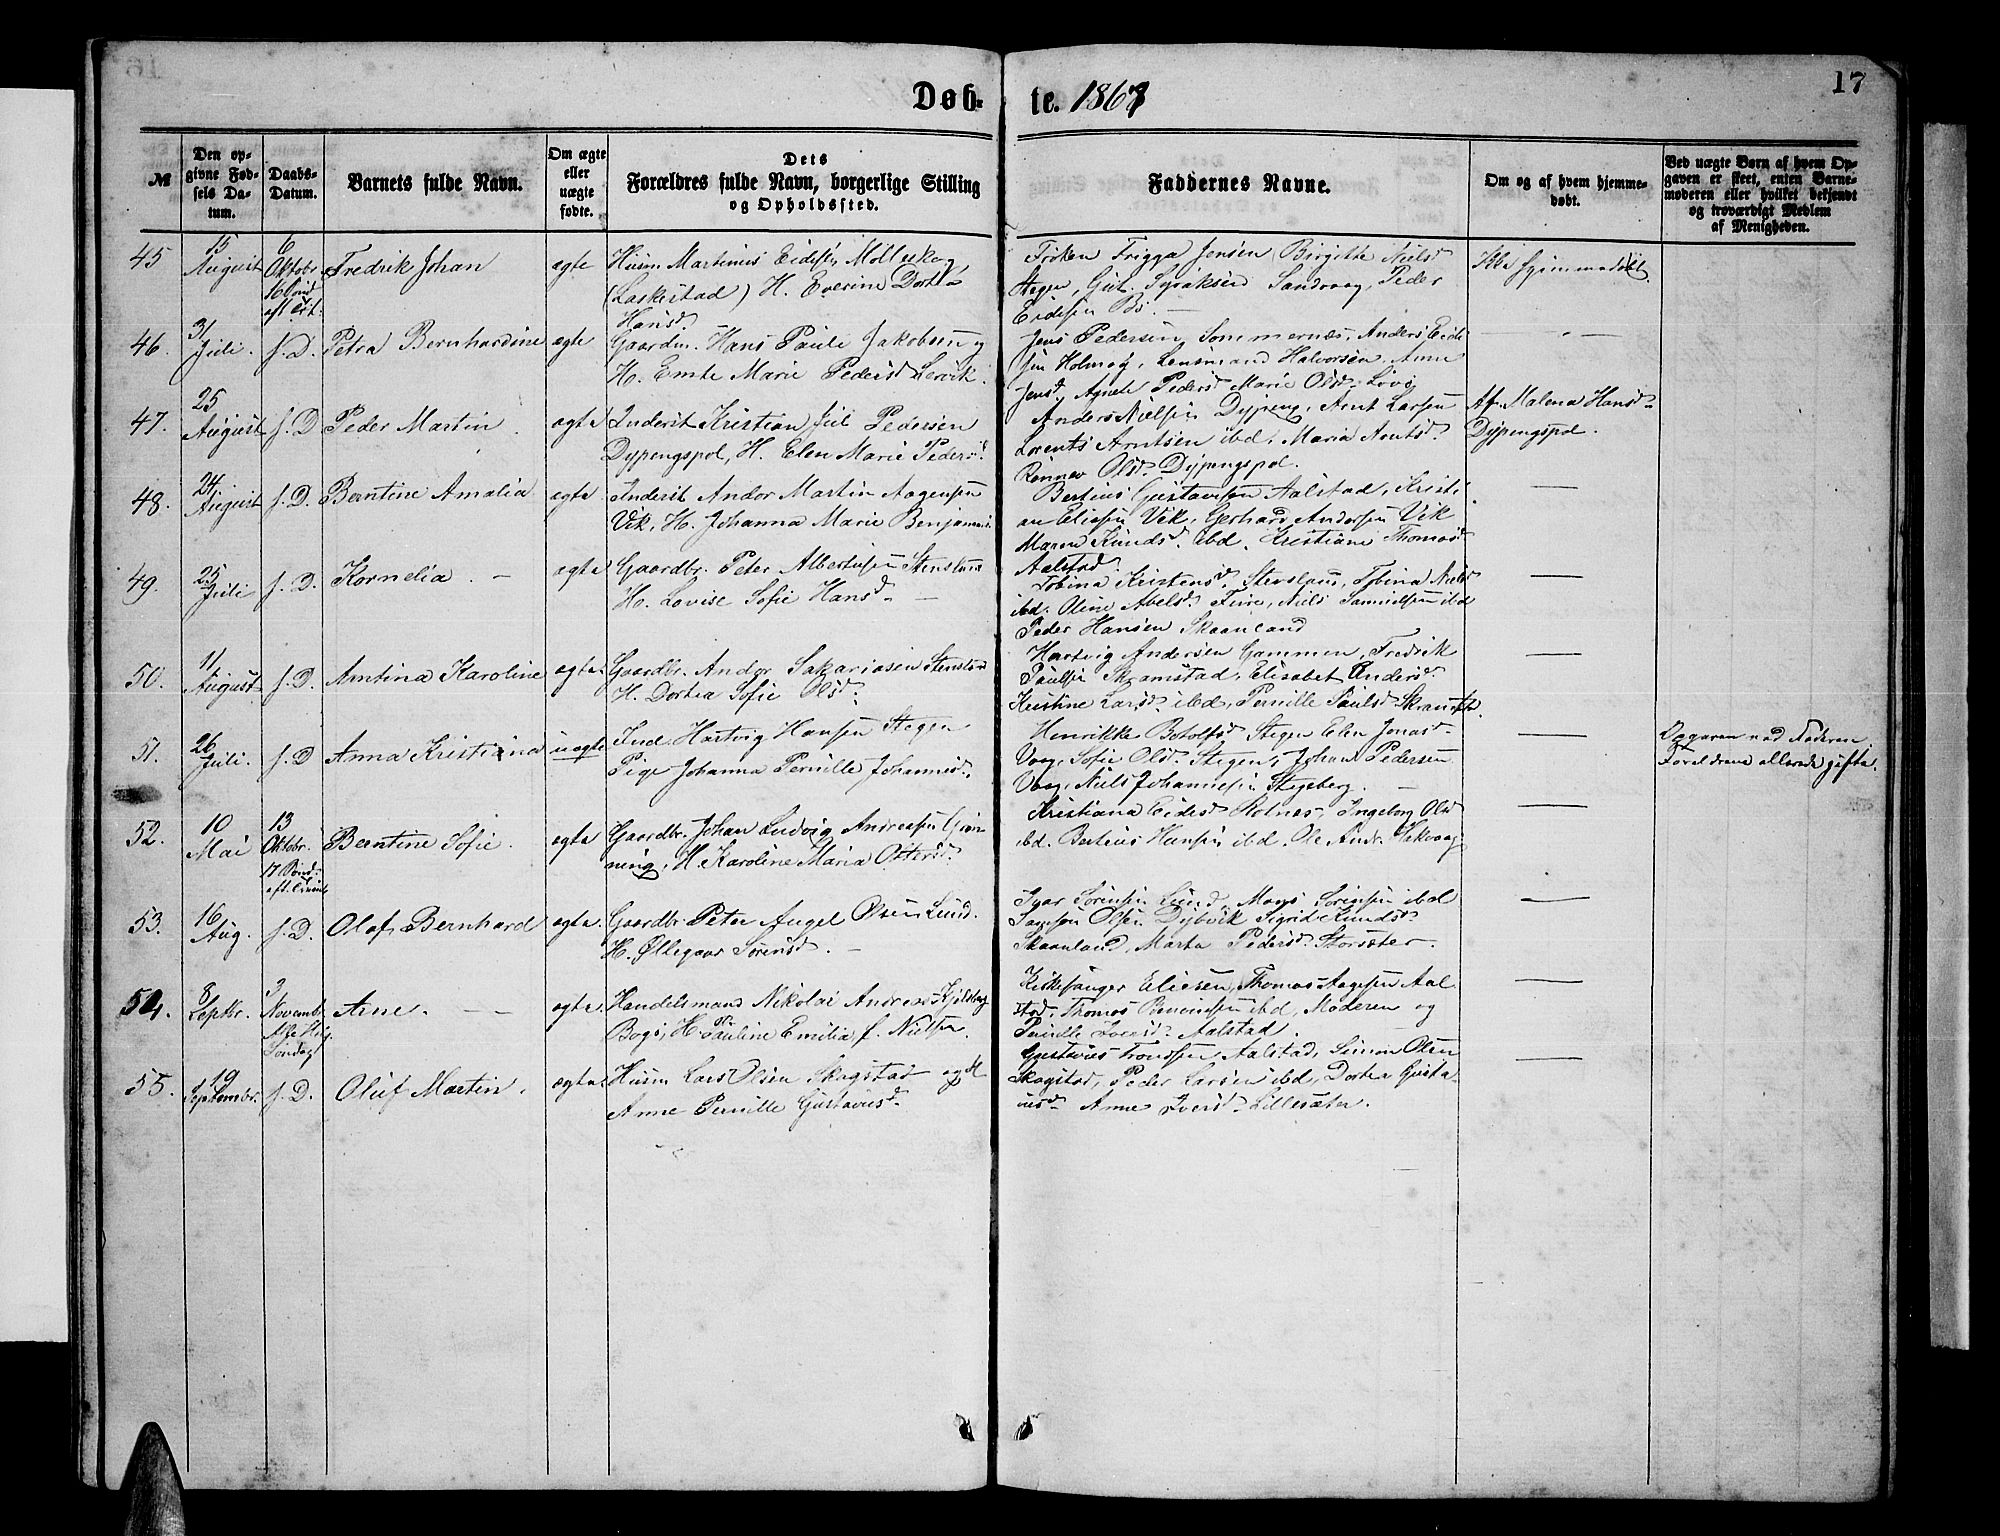 17
Døb- te. 1867
№
Den op-
givne Fød-
sels Da-
tum.
Daabs-
Datum.
Barnets fulde Navn.
Om ægte
eller
uægte
fødte.
Dets
Forældres fulde Navn, borgerlige Stilling
og Opholdssted.
Faddernes Navne.
Om og af hvem hjemme-
døbt.
Ved uægte Børn af hvem Op-
gaven er skeet, enten Barne-
moderen eller hvilket bekjendt
og troværdigt Medlem
af Menigheden.
45
15
August
6
Oktober
16 Sønd
eft. Trt.
Fredrik Johan
ægte
Husm Martinus Eidissen
(Laskestad) H. Everine Dortea
Hansd.
Frøken Frigga Jensen Birgitte Nielsd
Stegen, Gut. Sandvaag, Peder
Eidissen Bø.
Ikke hjemmedøbt.
46.
31
Juli.
s. D.
Petra Bernhardine
ægte
Gaardm. Hans Paule Jakobsen og
H. Emte Marie Pedersd Lervik.
Jens Pedersen Sommernæs, Anders Eidi
sen Holmøy, Lensmand Halvorsen. Anne
Jensd, Agnete Pedersd Marie Olsd. Løvø
47.
25
August
s. D
Peder Martin
ægte
Inderst Kristian Jul Pedersen
Dypengspol, H. Elen Marie Pedersd.
Anders Nielsen Dypeng, Arnt Larsen
Lorents Arntsen ibd, Maria Arntsd.
Rønnev Olsd. Dypengspol.
Af Malena Hansd.
Dypengspol.
48.
24
August
s. D.
Berntine Amalia
ægte
Inderst Andor Martin Aagensen
Vik, H. Johanna Marie Benjamins.
Berteus Gustavsen Aalstad, Kristi
an Eliesen Vik, Gerhard Andorsen Vik
Maren Knudsd. ibd. Kristiane Thomasd
Aalstad.
49.
25
Juli
s. D.
Kornelia.
ægte
Gaardbr. Peter Albertusen Stensland
H. Lovise Sofie Hansd.
Tobina Kristensd. Stensland, Tobina Nielsd
ibd. Oline Abelsd. Fure, Niels Samuelsen ibd
Peder Hansen Skaanland
50.
11
August
s. D.
Arntina Karoline
ægte
Gaardbr. Andor Sakariasen Stensland
H. Dortea Sofie Olsd.
Hartvig Andersen Gammen, Fredrik
Paulsen Skramstad, Elisabet Andersd.
Kristine Larsd. ibd, Pernille Paulsd Skramsta
51.
26
Juli.
s. D
Anna Kristiana
uægte
Ind. Hartvig Hansen Stegen
Pige Johanna Pernille Johannesd.
Henrikke Botolfsd Stegen Elen Jonasd.
Vaag, Sofie Olsd. Stegen, Johan Pedersen
Vaag, Niels Johannessen Stegeberg.
Opgaven ved Faderen
Foreldrene allerede gifte.
52.
10
Mai
13
Oktobr.
17 Sønd.
eft. Trinit
Berntine Sofie.
ægte
Gaardbr. Johan Ludvig Andreasen Grøn
ning, H. Karoline Maria Ottersd.
Kristiana Eidesd. Holnes, Ingeborg Olsd
ibd. Berteus Hansen ibd. Ole Andr. Hakvaag
53.
16
Aug.
s. D.
Olaf Bernhard
ægte.
Gaardbr. Peter Angel Olsen Lund.
H. Øllegaar Sørensd.
Ivar Sørensen Lund, Mons Sørensen ibd
Olsen Dybvik Sigrid Knudsd.
Skaanland, Marta Pedersd. Storsæter.
54.
8
Septbr.
3
Novembr
Alle Helg
Søndag
Arne.
ægte.
Handelsmand Nikolai Andreas Kjeldseng
Bogø, H. Pauline Emilia, f. Nielsen.
Kirkesanger Eliesen, Thomas Aagesen Aal
stad, Thomas ibd, Moderen og
Pernille Iversd. Aalstad.
55.
19
Septembr.
s. D.
Oluf Martin.
ægte
Husm Lars Olsen Skogstad og H
Anne Pernille Gustavusd.
Gustavus Trondsen, Aalstad, Simon Olsen
Skogstad, Peder Larsen ibd, Dortea Gusta-
vusd. Anne Iversd. Lillesæter.